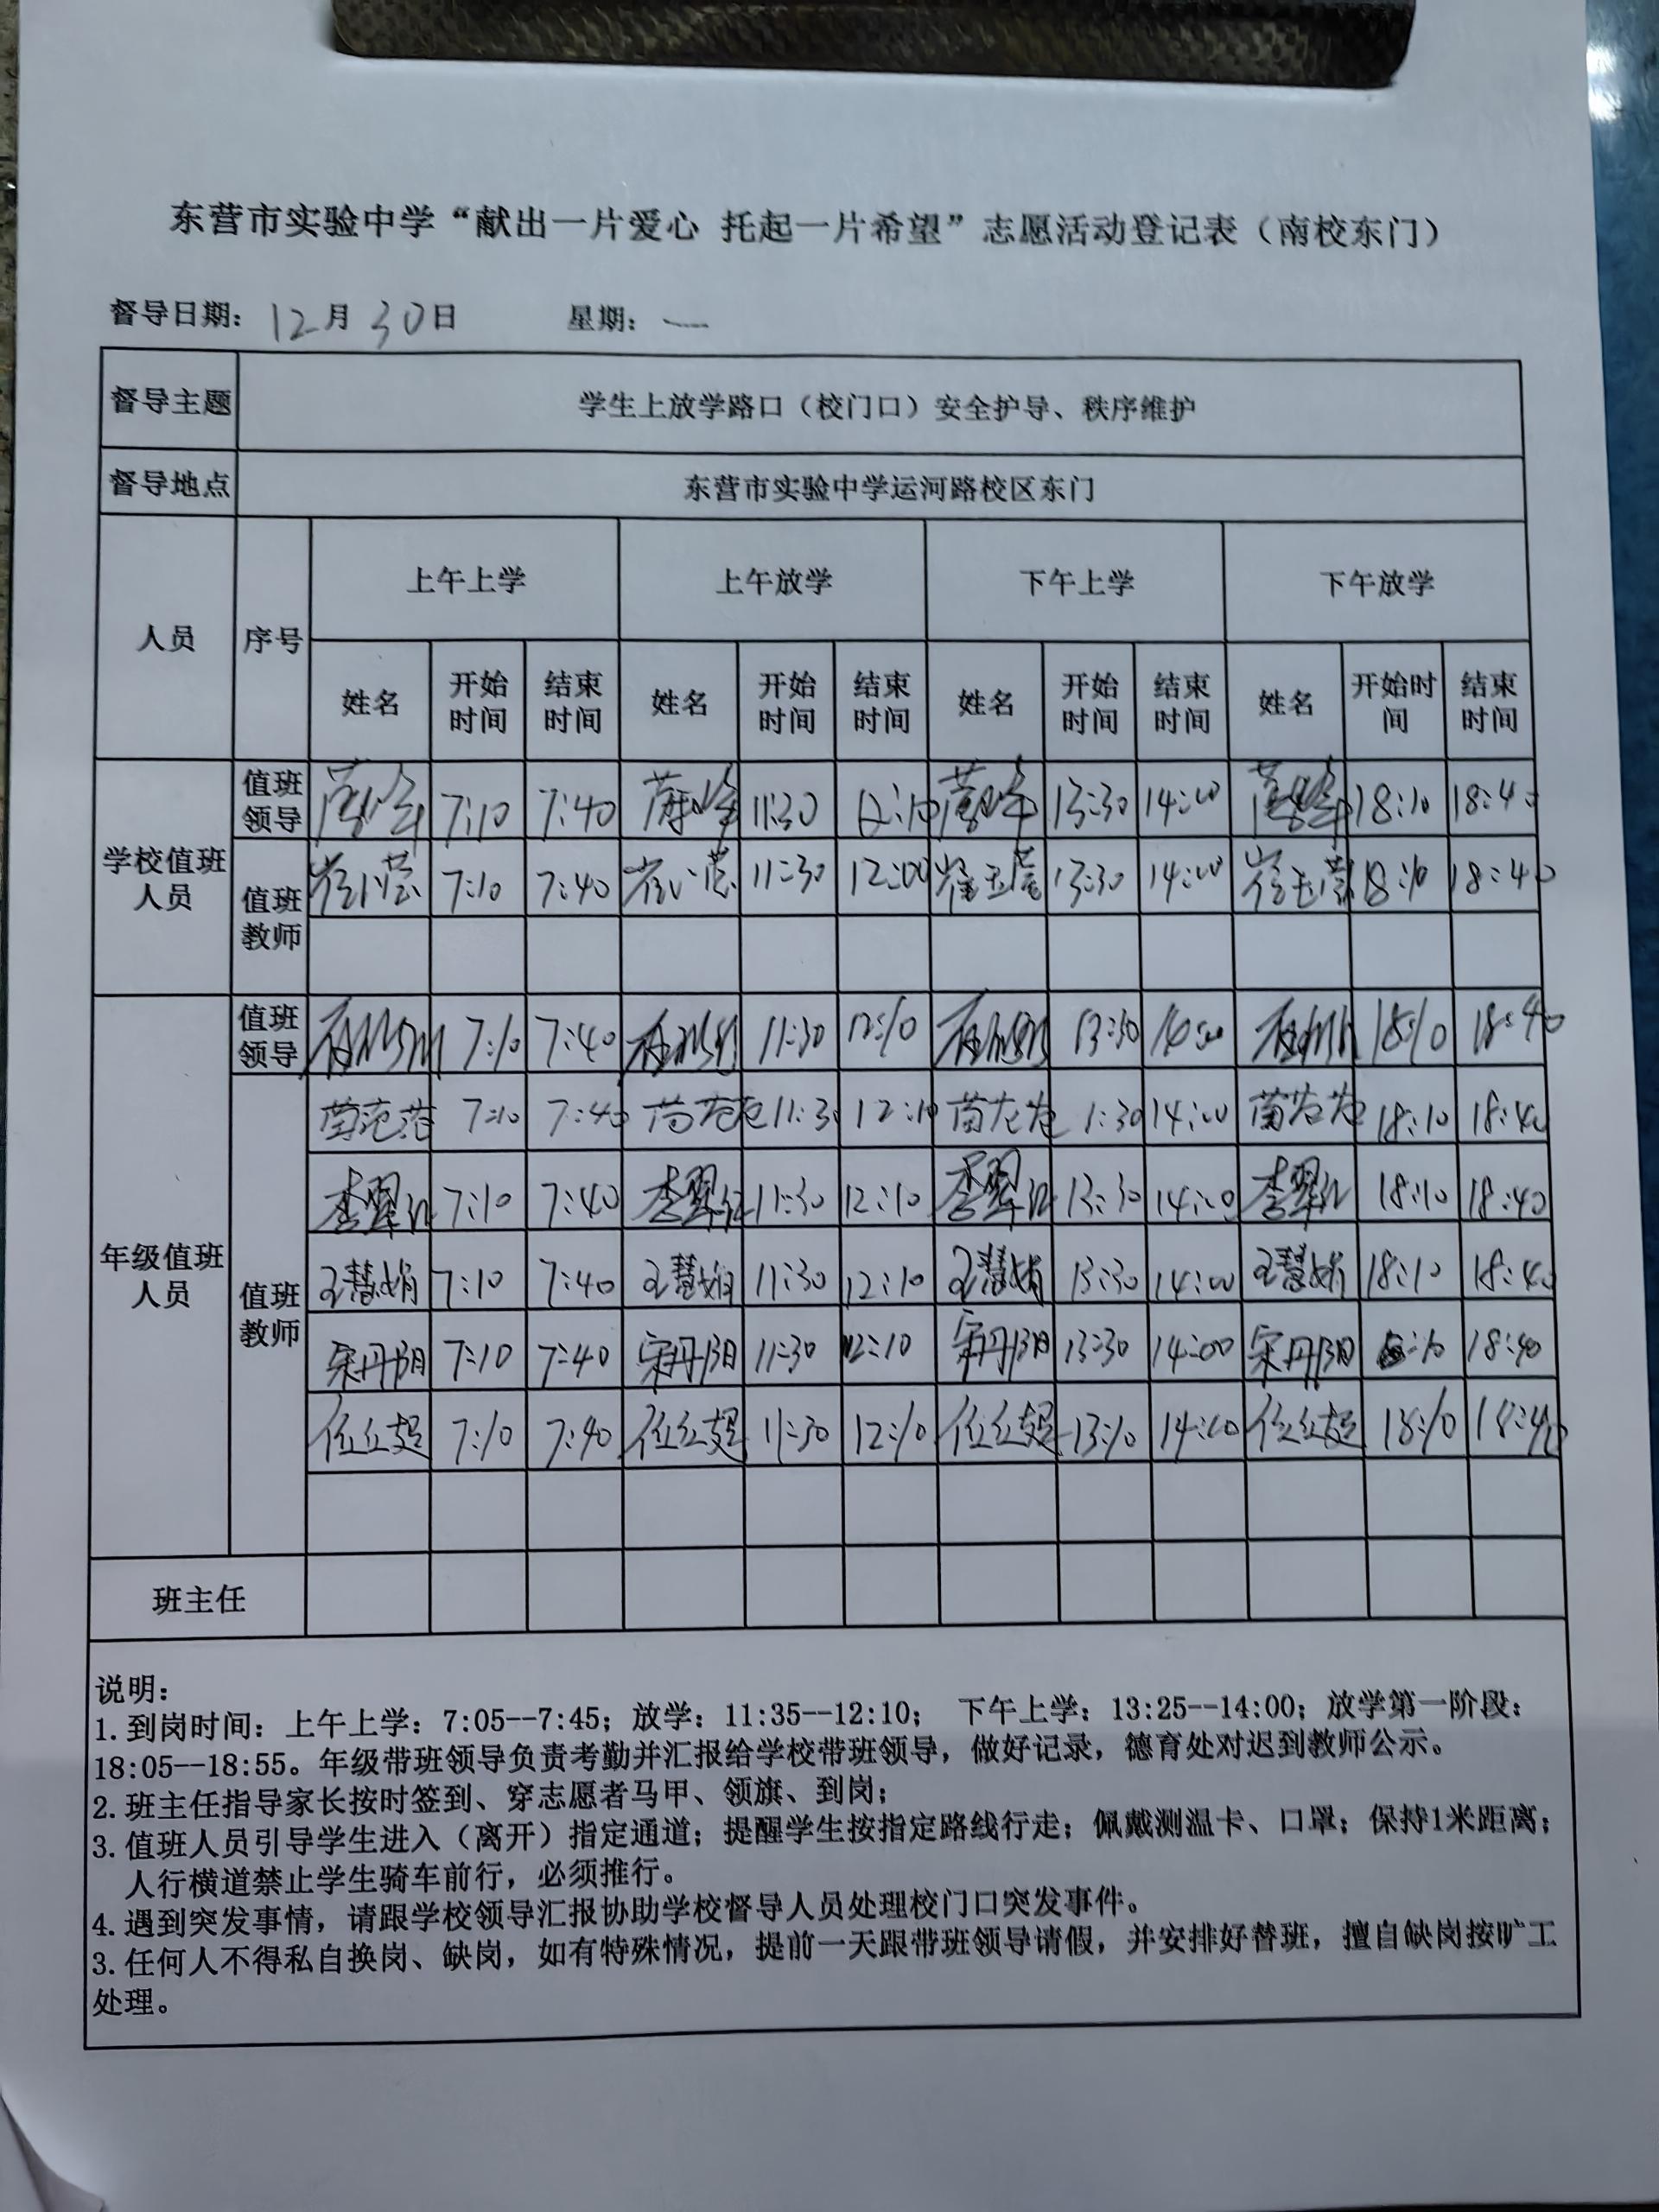 东营市实验中学“献出一片爱心 托起一片希望”志愿活动登记表（南校东门）
督导日期：12月30日 星期：一
督导主题 学生上放学路口（校门口）安全护导、秩序维护
督导地点 东营市实验中学运河路校区东门
人员 序号 上午上学 上午放学 下午上学 下午放学
姓名 开始时间 结束时间 姓名 开始时间 结束时间 姓名 开始时间 结束时间 姓名 开始时间 结束时间
学校值班人员 值班领导 7:10 7:40 11:30 12:10 13:30 14:00 18:10 18:40
值班教师 7:10 7:40 11:30 12:00 崔玉莹 13:30 14:00 崔玉莹 18:10 18:40
年级值班人员 值班领导 7:10 7:40 11:30 12:10 13:30 18:10 18:40
值班教师 7:10 7:40 11:30 12:10 1:30 14:00 18:10 18:40
李翠红 7:10 7:40 李翠红 11:30 12:10 李翠红 13:30 14:00 李翠红 18:10 18:40
王慧娟 7:10 7:40 王慧娟 11:30 12:10 王慧娟 13:30 14:00 王慧娟 18:10 18:40
宋丹阳 7:10 7:40 宋丹阳 11:30 12:10 宋丹阳 13:30 14:00 宋丹阳 18:40
7:10 7:40 11:30 12:10 13:10 14:00 18:10 18:40
班主任
说明：
1.到岗时间：上午上学：7:05--7:45；放学：11:35--12:10； 下午上学：13:25--14:00；放学第一阶段：
18:05--18:55。年级带班领导负责考勤并汇报给学校带班领导，做好记录，德育处对迟到教师公示。
2.班主任指导家长按时签到、穿志愿者马甲、领旗、到岗；
3.值班人员引导学生进入（离开）指定通道；提醒学生按指定路线行走；佩戴测温卡、口罩；保持1米距离；
人行横道禁止学生骑车前行，必须推行。
4.遇到突发事情，请跟学校领导汇报协助学校督导人员处理校门口突发事件。
3.任何人不得私自换岗、缺岗，如有特殊情况，提前一天跟带班领导请假，并安排好替班，擅自缺岗按旷工
处理。